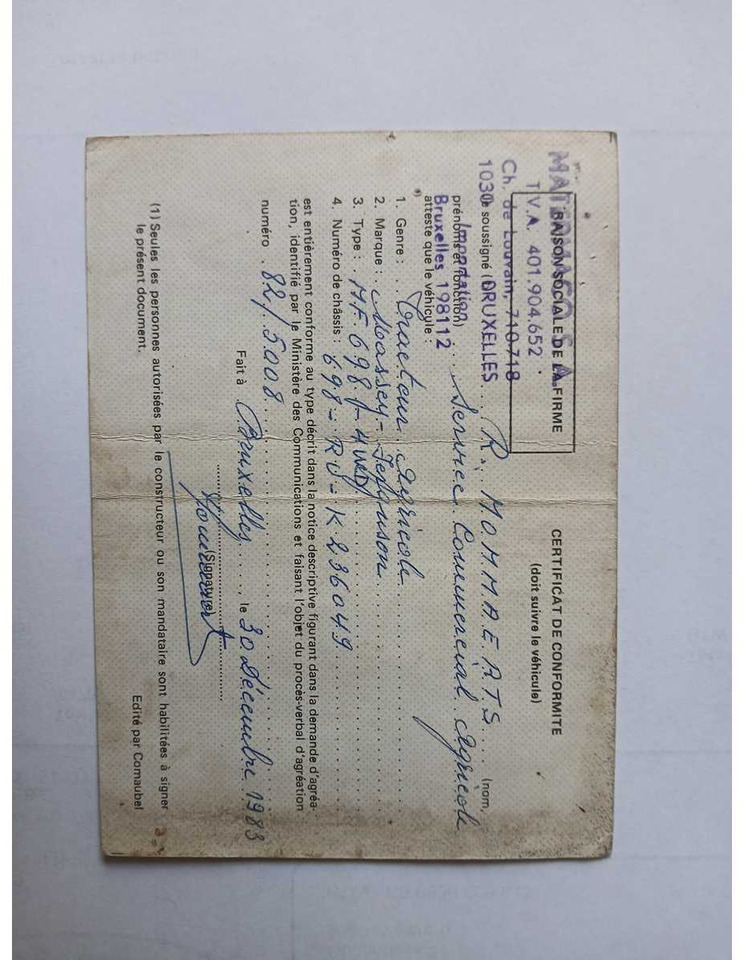 MATERMACO S.A.
RAISON SOCIALE DE LA FIRME
T.V.A. 401.904.652
Ch. de Louvain, 710-718
1030 BRUXELLES
CERTIFICAT DE CONFORMITE
(doit suivre le véhicule)
soussigné R. MOMMAERTS (nom,
prénoms et fonction) Service Commercial Agricole
Importation
Bruxelles 198112
atteste que le véhicule :
1. Genre : Tracteur Agricole
2. Marque : Massey-Ferguson
3. Type : MF 698 4 WD
4. Numéro de châssis : 698-RV-K236049
est entièrement conforme au type décrit dans la notice descriptive figurant dans la demande d'agréa-
tion, identifié par le Ministère des Communications et faisant l'objet du procès-verbal d'agréation
numéro 82/5008
Fait à Bruxelles, le 30 Décembre 1983
(Signature)
(1) Seules les personnes autorisées par le constructeur ou son mandataire sont habilitées à signer
le présent document.
Edité par Comaubel